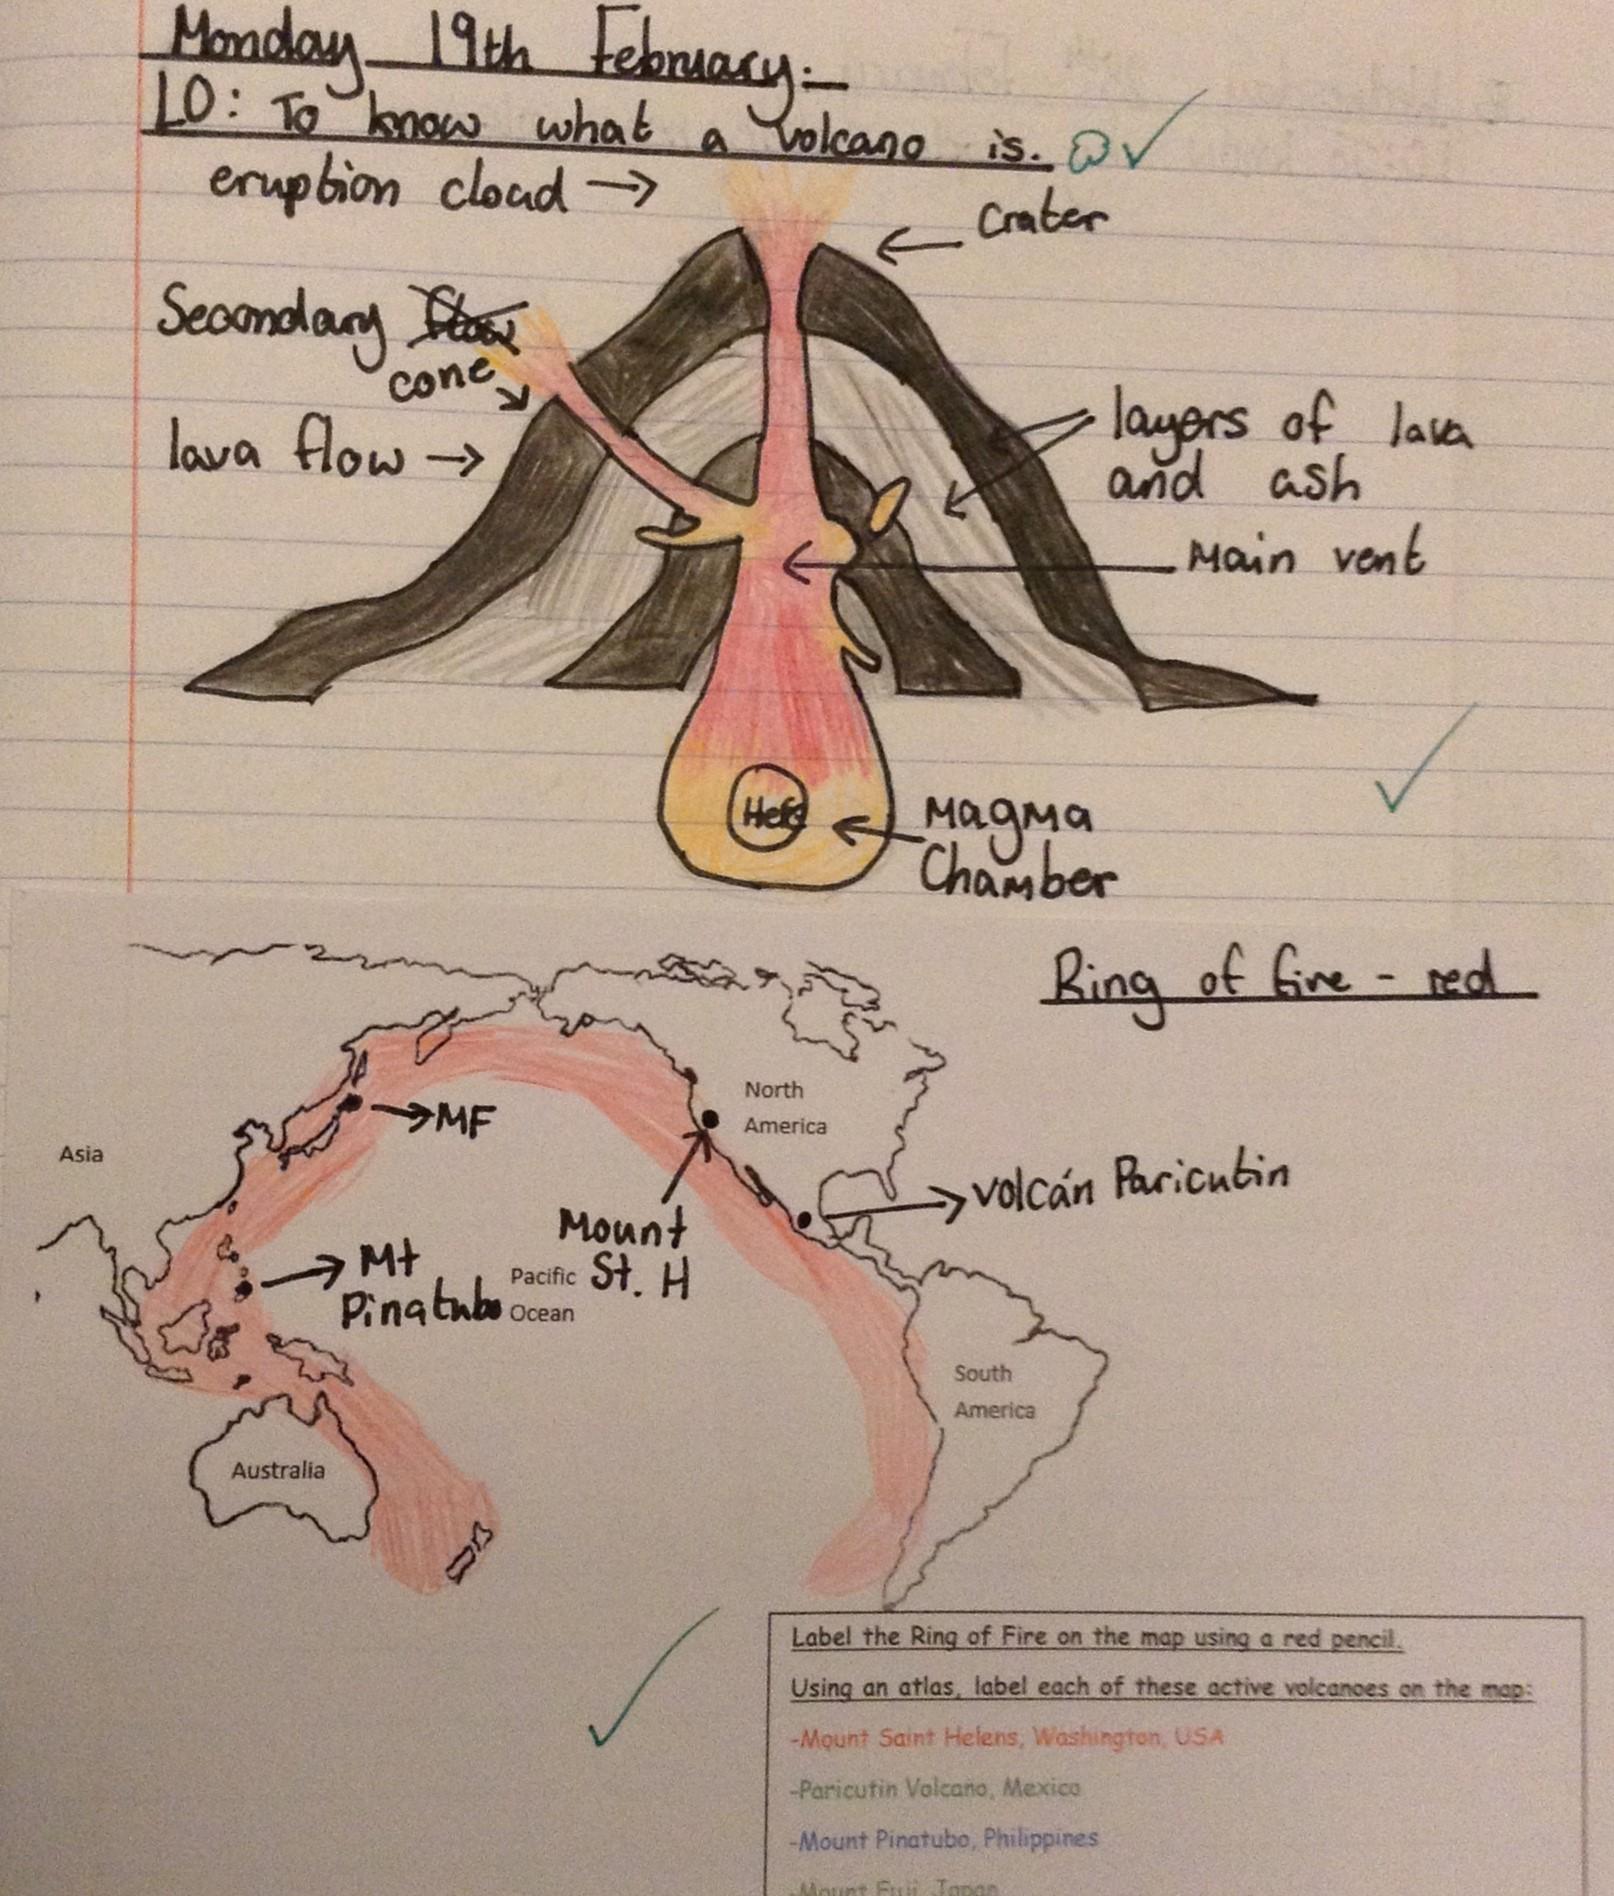 Monday 19th February.
LO: To know what a volcano is.
eruption cloud →
Crater
Secondary flow
cone
lava flow →
layers of lava
and ash
Main vent
Here
Magma
Chamber
Ring of fire - red
North
America
MF
Asia
Volcán Paricutin
Mount
St. H
Mt
Pinatubo
Pacific
Ocean
South
America
Australia
Label the Ring of Fire on the map using a red pencil.
Using an atlas, label each of these active volcanoes on the map:
-Mount Saint Helens, Washington, USA
-Paricutin Volcano, Mexico
-Mount Pinatubo, Philippines
-Mount Fuji, Japan